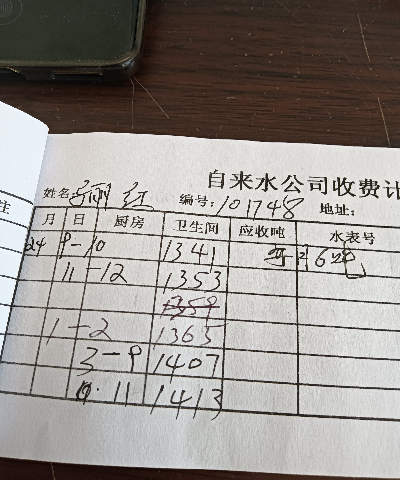 自来水公司收费计
姓名 丽红 编号: 101748 地址:
注
月 日 厨房 卫生间 应收吨 水表号
24 9-10 1341
11-12 1353
1359
1-2 1365
3-9 1407
11 1413